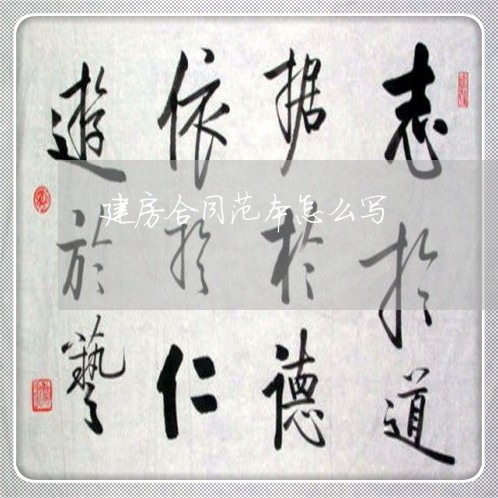 志於道
据於德
依於仁
遊於藝
建房合同范本怎么写